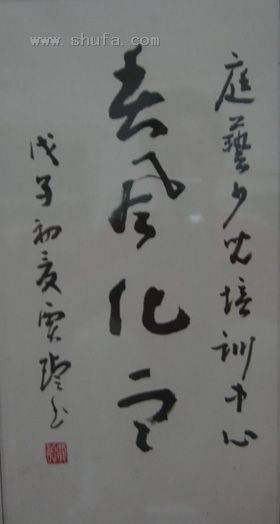 www.shufa.com
庭藝少儿培训中心
春风化雨
戊子初夏